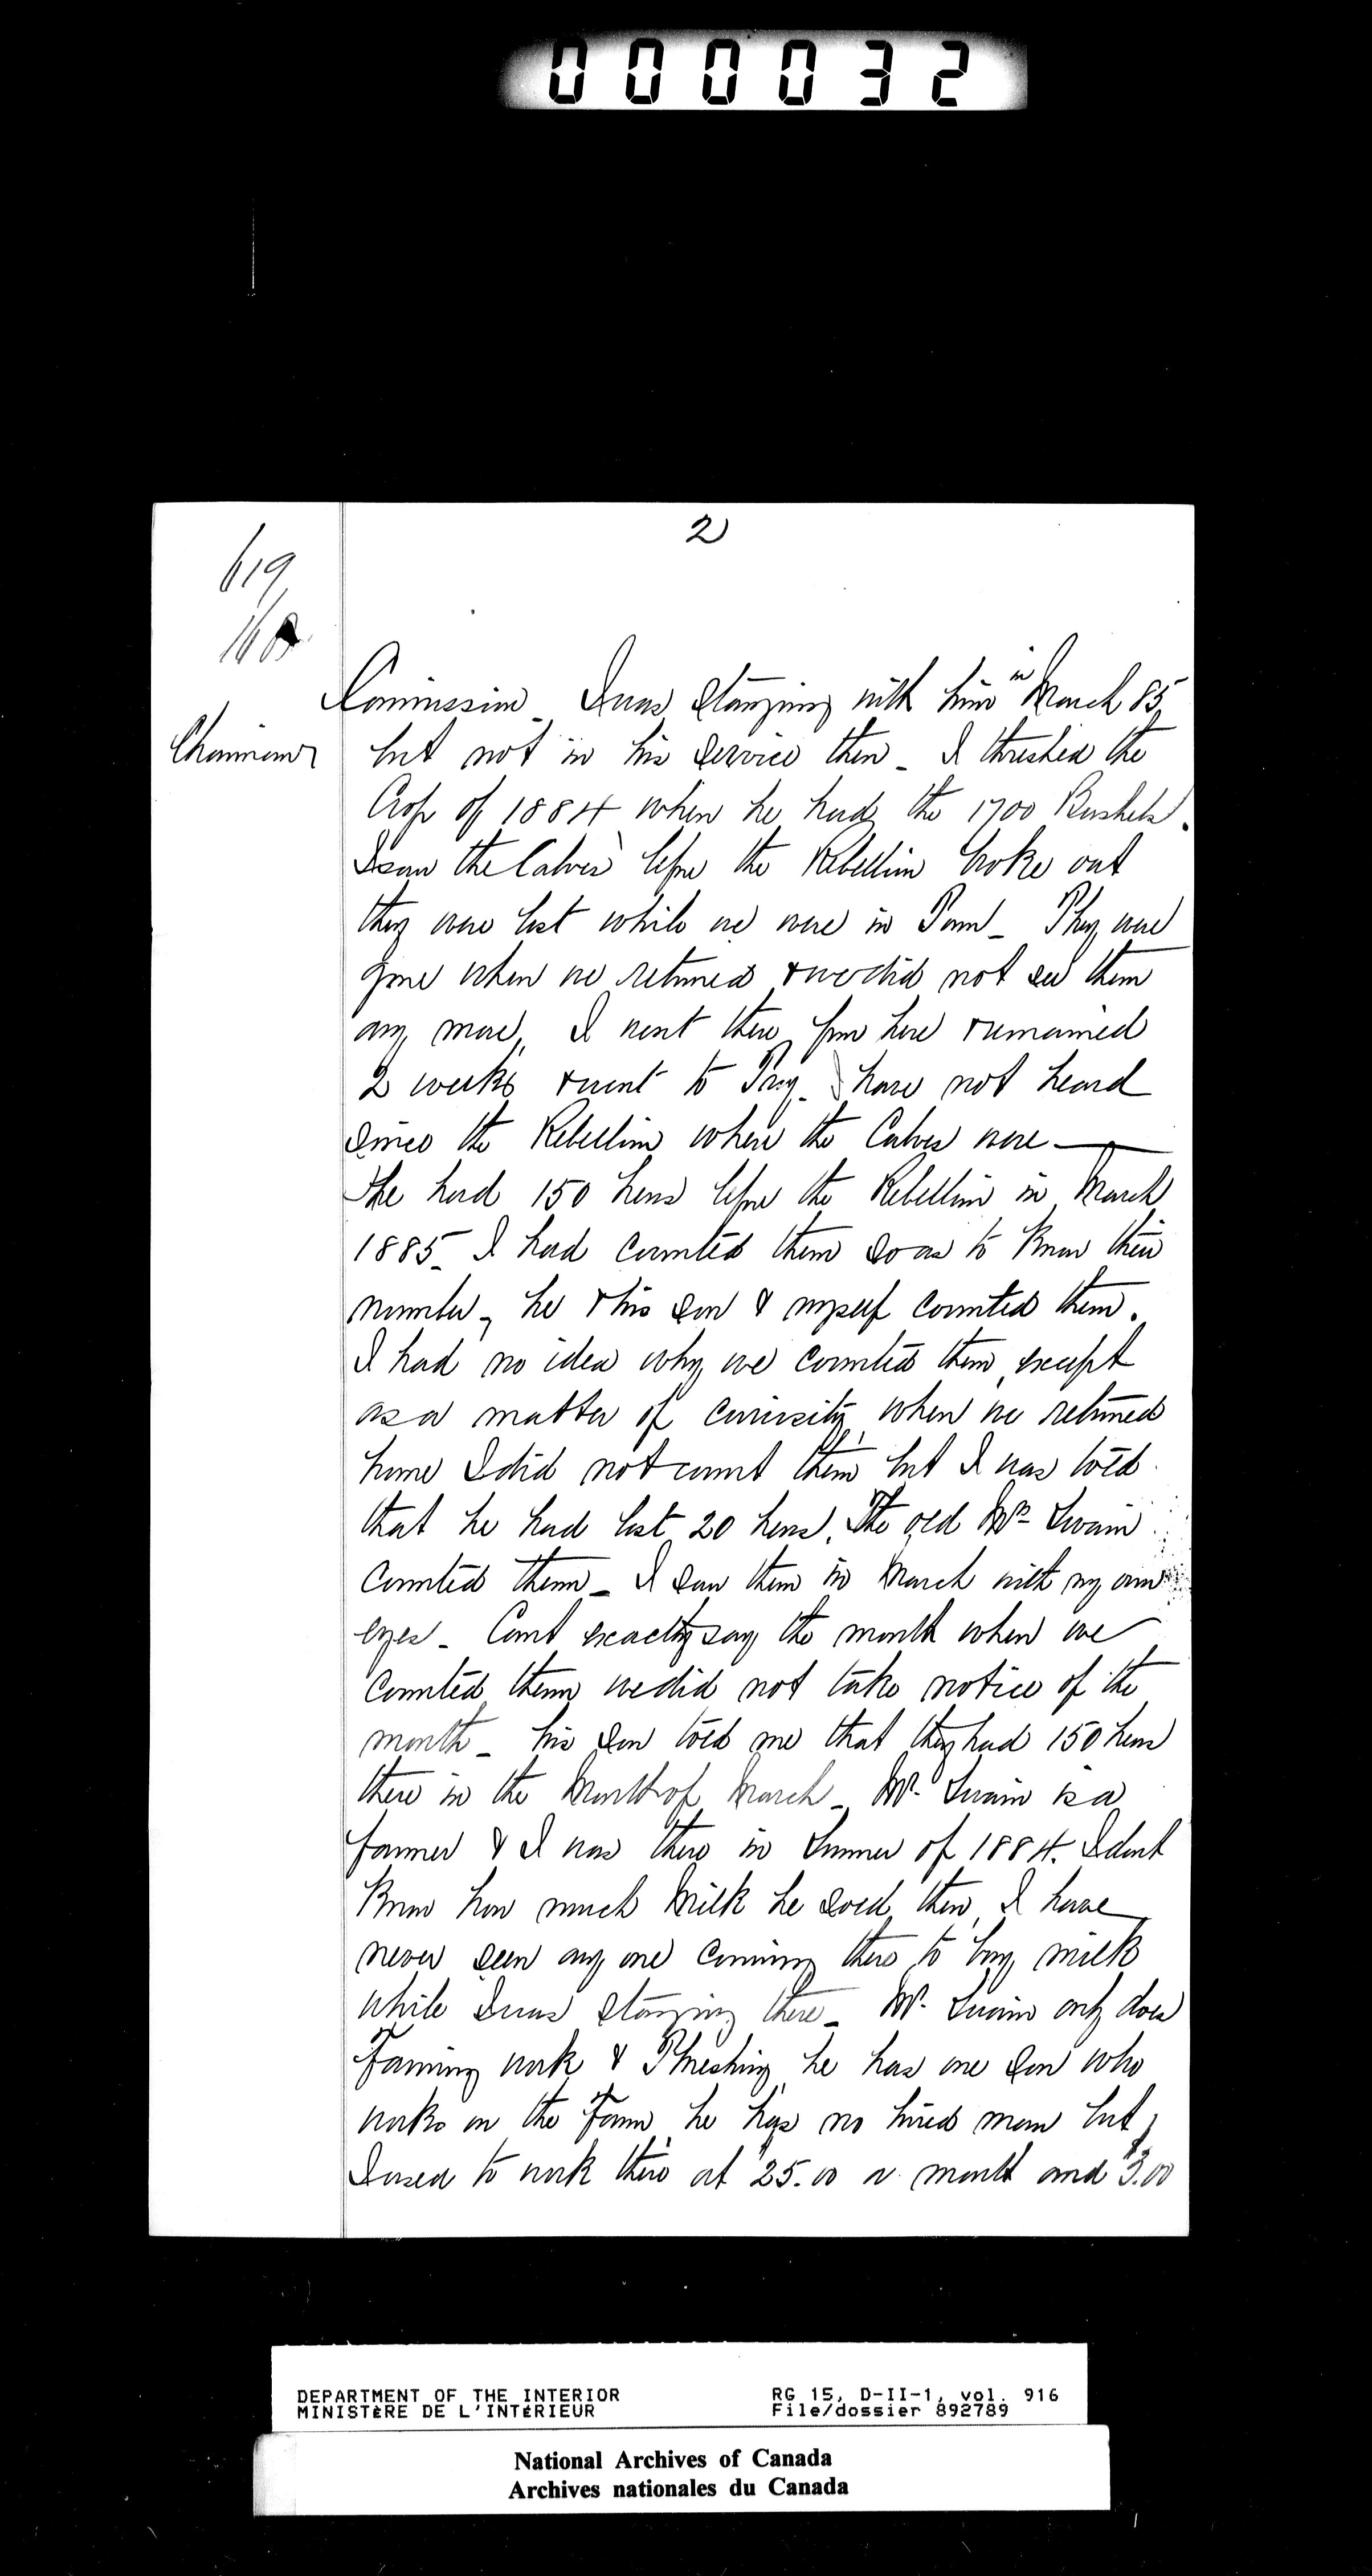 000032
2
619
Commission _ I was staying with him in March 85,
Chairman
but not in his service then _ I threshed the
Crop of 1884 when he had the 1700 Bushels.
I saw the Calves before the Rebellion broke out
they were lost while we were in Town _ They were
gone when we returned & we did not see them
any more, I went there from here & remained
2 weeks & went to I have not heard
since the Rebellion where the Calves were _
He had 150 hens before the Rebellion in March
1885 _ I had counted them so as to know their
number, he & his son & myself counted them.
I had no idea why we counted them, except
as a matter of curiosity, when we returned
home I did not count them but I was told
that he had lost 20 hens. The old Mr Swain
counted them _ I saw them in March with my own
eyes _ Cant exactly say the month when we
counted them we did not take notice of the
month _ his son told me that they had 150 hens
there in the Month of March _ Mr. Swain is a
farmer & I was there in Summer of 1884. I dont
know how much Milk he sold then, I have
never seen any one coming there to buy milk
while I was staying there _ Mr. Swain only does
Farming work & Threshing he has one son who
works on the Farm, he has no hired man but
I used to work there at $25.00 a month and $3.00
DEPARTMENT OF THE INTERIOR
MINISTÈRE DE L'INTÉRIEUR
RG 15, D-II-1, vol. 916
File/dossier 892789
National Archives of Canada
Archives nationales du Canada